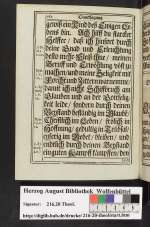 gewiß ein Kind des Ewigen Le-
bens bin. Ach hilff du starcker
Helffer / daß ich hierzu durch
deine Gnad und Erleuchtung
desto mehr Fleiß thue / meinen
Beruff und Erwöhlung vest zu
machen / und meine Seligkeit mit
Forcht und Zittern
damit ich nicht Schiffbruch am
Glauben und an der
keit leide / sondern durch deinen
Beystand beständig im Glaube /
Christlich im Leben / frölich in
Hoffnung / gedultig in Trübsal /
im Gebet / bleiben / und
endlich durch deinen Beystand
ein guten Kampff kämpffen / den
Herzog August Bibliothek Wolfenbüttel
Signatur: 216.20 Theol.
http://diglib.hab.de/drucke/216-20-theol/start.htm